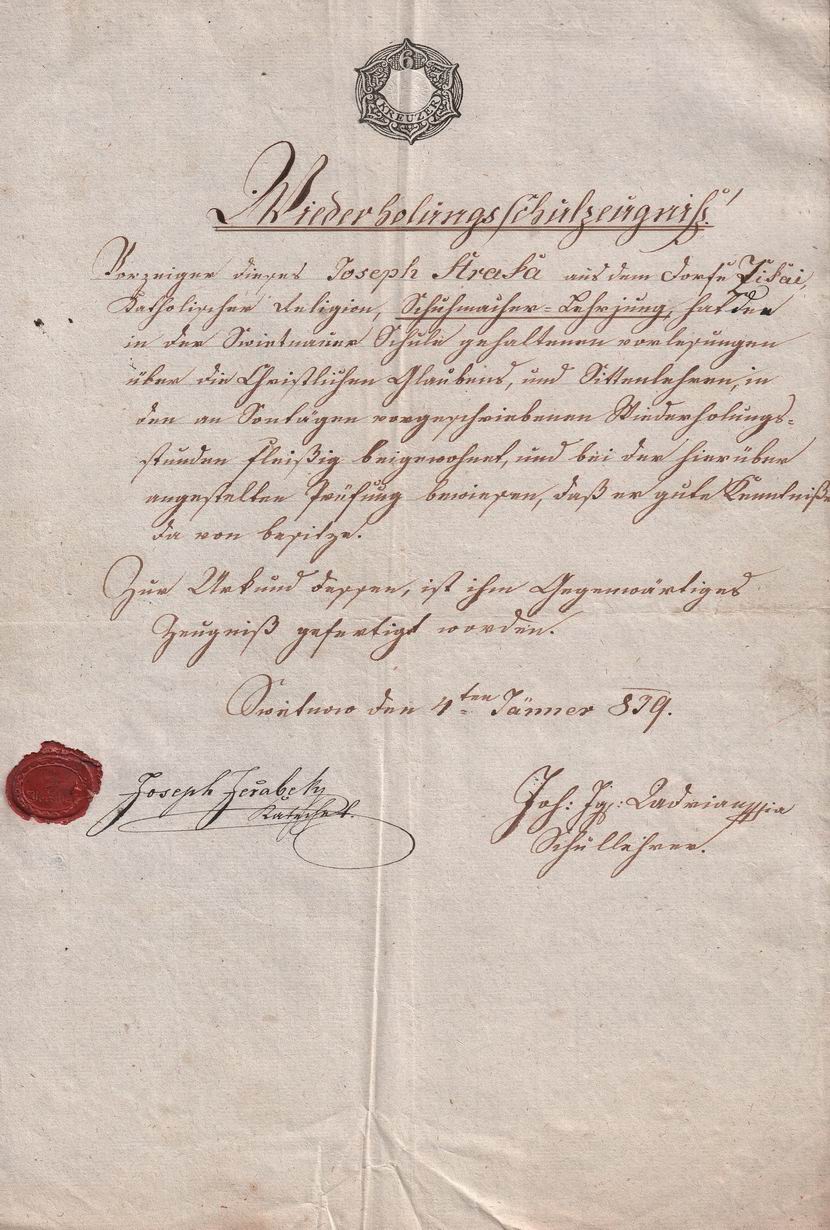 6
KREUZER
Wiederholungsschulzeugniß!
Vorzeiger dieses Joseph Straka aus dem Dorfe
Katholischer Religion, Schuhmacher-Lehrjung, hat den
in der Swietnauer Schule gehaltenen vorlesungen
über die Christlichen Glaubens, und Sittenlehren, in
den an Sontägen vorgeschriebenen Wiederholungs-
stunden fleißig beigewohnet, und bei der hierüber
angestelten Prüfung bewiesen, daß er gute Kenntniße
da von besitze.
Zur Urkund dessen, ist ihm Gegenwärtiges
Zeugniß gefertigt worden.
Swietnow den 4ten Jänner 839.
Joseph Jeřabek
Katechet.
Joh: Ig:
Schullehrer.